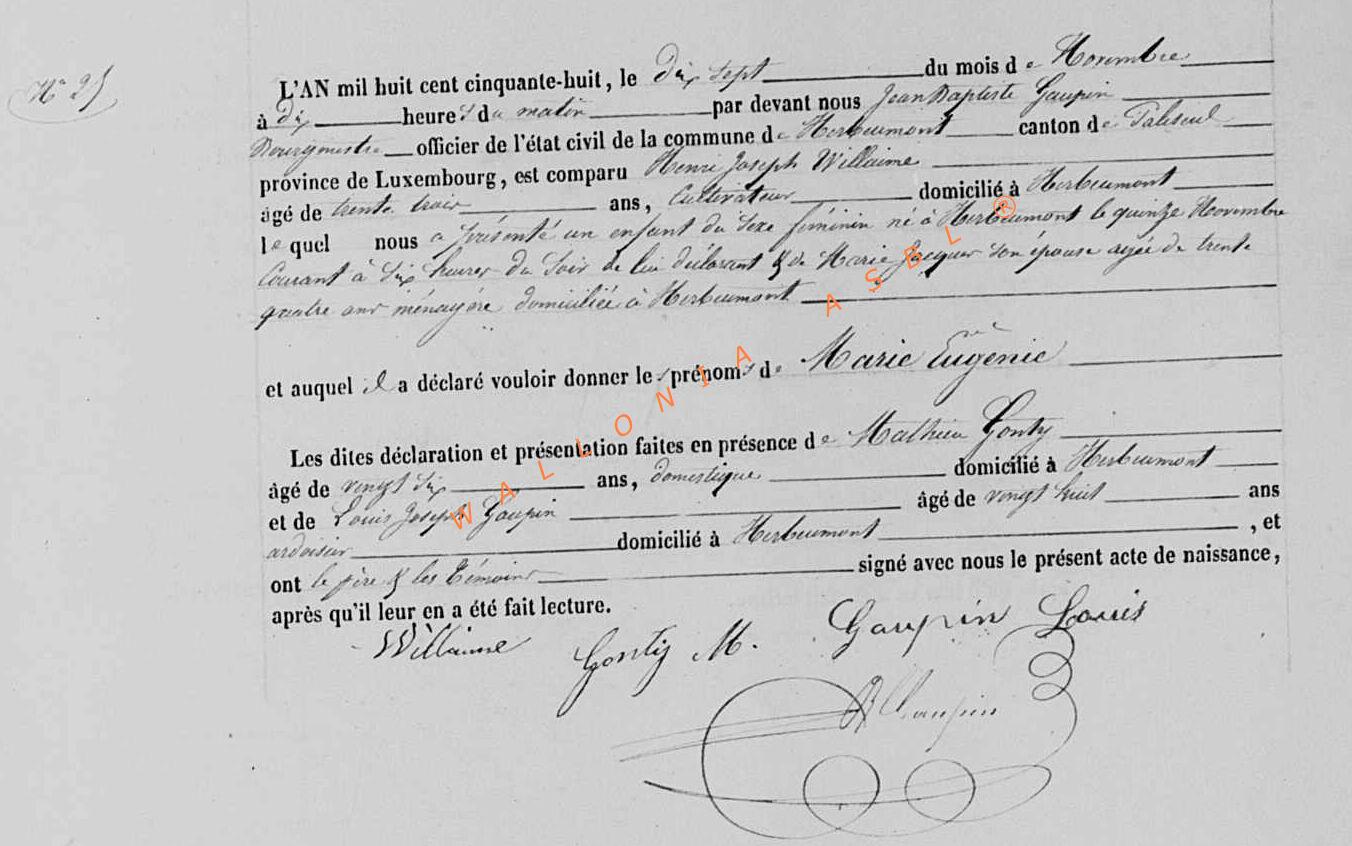 N° 25
L'AN mil huit cent cinquante-huit, le dix sept du mois de Novembre
à dix heures du matin par devant nous Jean Baptiste Gaupin
Bourgmestre officier de l'état civil de la commune de Herbeumont canton de Paliseul
province de Luxembourg, est comparu Henri Joseph Willaime
âgé de trente trois ans, Cultivateur domicilié à Herbeumont
lequel nous a présenté un enfant du sexe féminin né à Herbeumont le quinze Novembre
Courant à six heures du soir de lui déclarant & de Marie Jacques son épouse agée de trente
quatre ans ménagère domiciliée à Herbeumont
et auquel il a déclaré vouloir donner les prénoms de Marie Eugénie
Les dites déclaration et présentation faites en présence de Mathieu Gonty
âgé de vingt six ans, domestique domicilié à Herbeumont
et de Louis Joseph Gaupin âgé de vingt huit ans
ardoisier domicilié à Herbeumont, et
ont le père & les témoins signé avec nous le présent acte de naissance,
après qu'il leur en a été fait lecture.
Willaime Gonty M. Gaupin Louis
Gaupin
WALLONIA ASBL ®